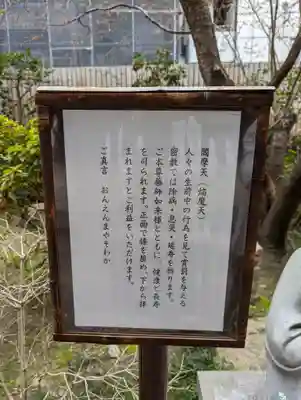 閻摩天（焔魔天）
人々の生前中の行為を見て賞罰を与える
密教では除病・息災・延寿を祈ります。
ご本尊薬師如来様とともに、健康と長寿
を司られます。正面で膝を屈め、下から拝
まれますとご利益をいただけます。
ご真言　おんえんまやそわか